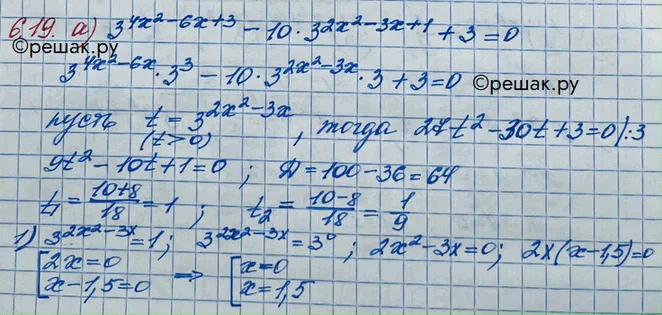 6.19. а) 3^{4x²-6x+3} - 10 · 3^{2x²-3x+1} + 3 = 0
©решак.ру
3^{4x²-6x} · 3³ - 10 · 3^{2x²-3x} · 3 + 3 = 0 ©решак.ру
пусть t = 3^{2x²-3x} (t > 0), тогда 27t² - 30t + 3 = 0 |:3
9t² - 10t + 1 = 0; D = 100 - 36 = 64
t₁ = (10+8)/18 = 1; t₂ = (10-8)/18 = 1/9
1) 3^{2x²-3x} = 1; 3^{2x²-3x} = 3⁰; 2x² - 3x = 0; 2x(x - 1,5) = 0
[2x = 0 ⇒ [x = 0
[x - 1,5 = 0 [x = 1,5